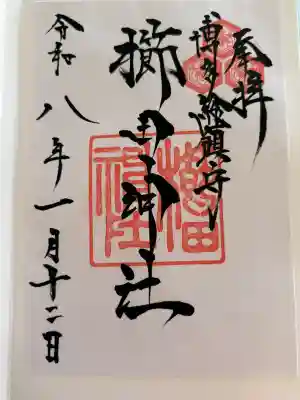 奉拝
博多総鎮守
櫛田神社
令和八年一月十二日
櫛田
神社